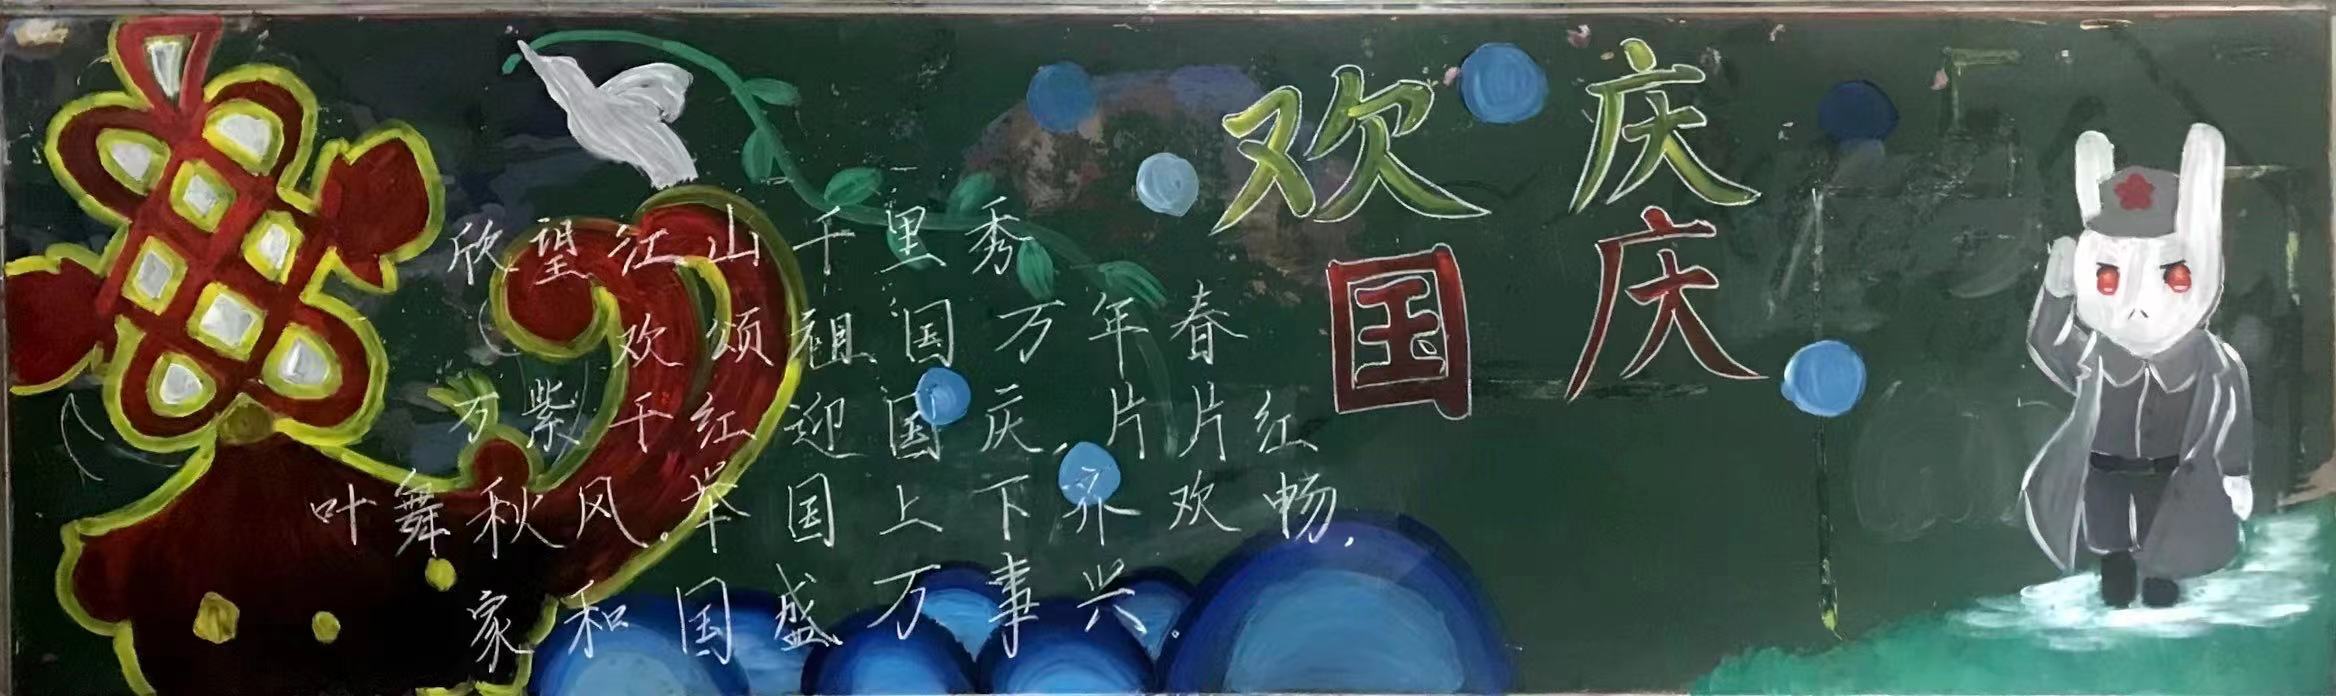 欢庆
国庆
欣望江山千里秀
欢颂祖国万年春
万紫千红迎国庆,片片红
叶舞秋风。举国上下齐欢畅,
家和国盛万事兴。